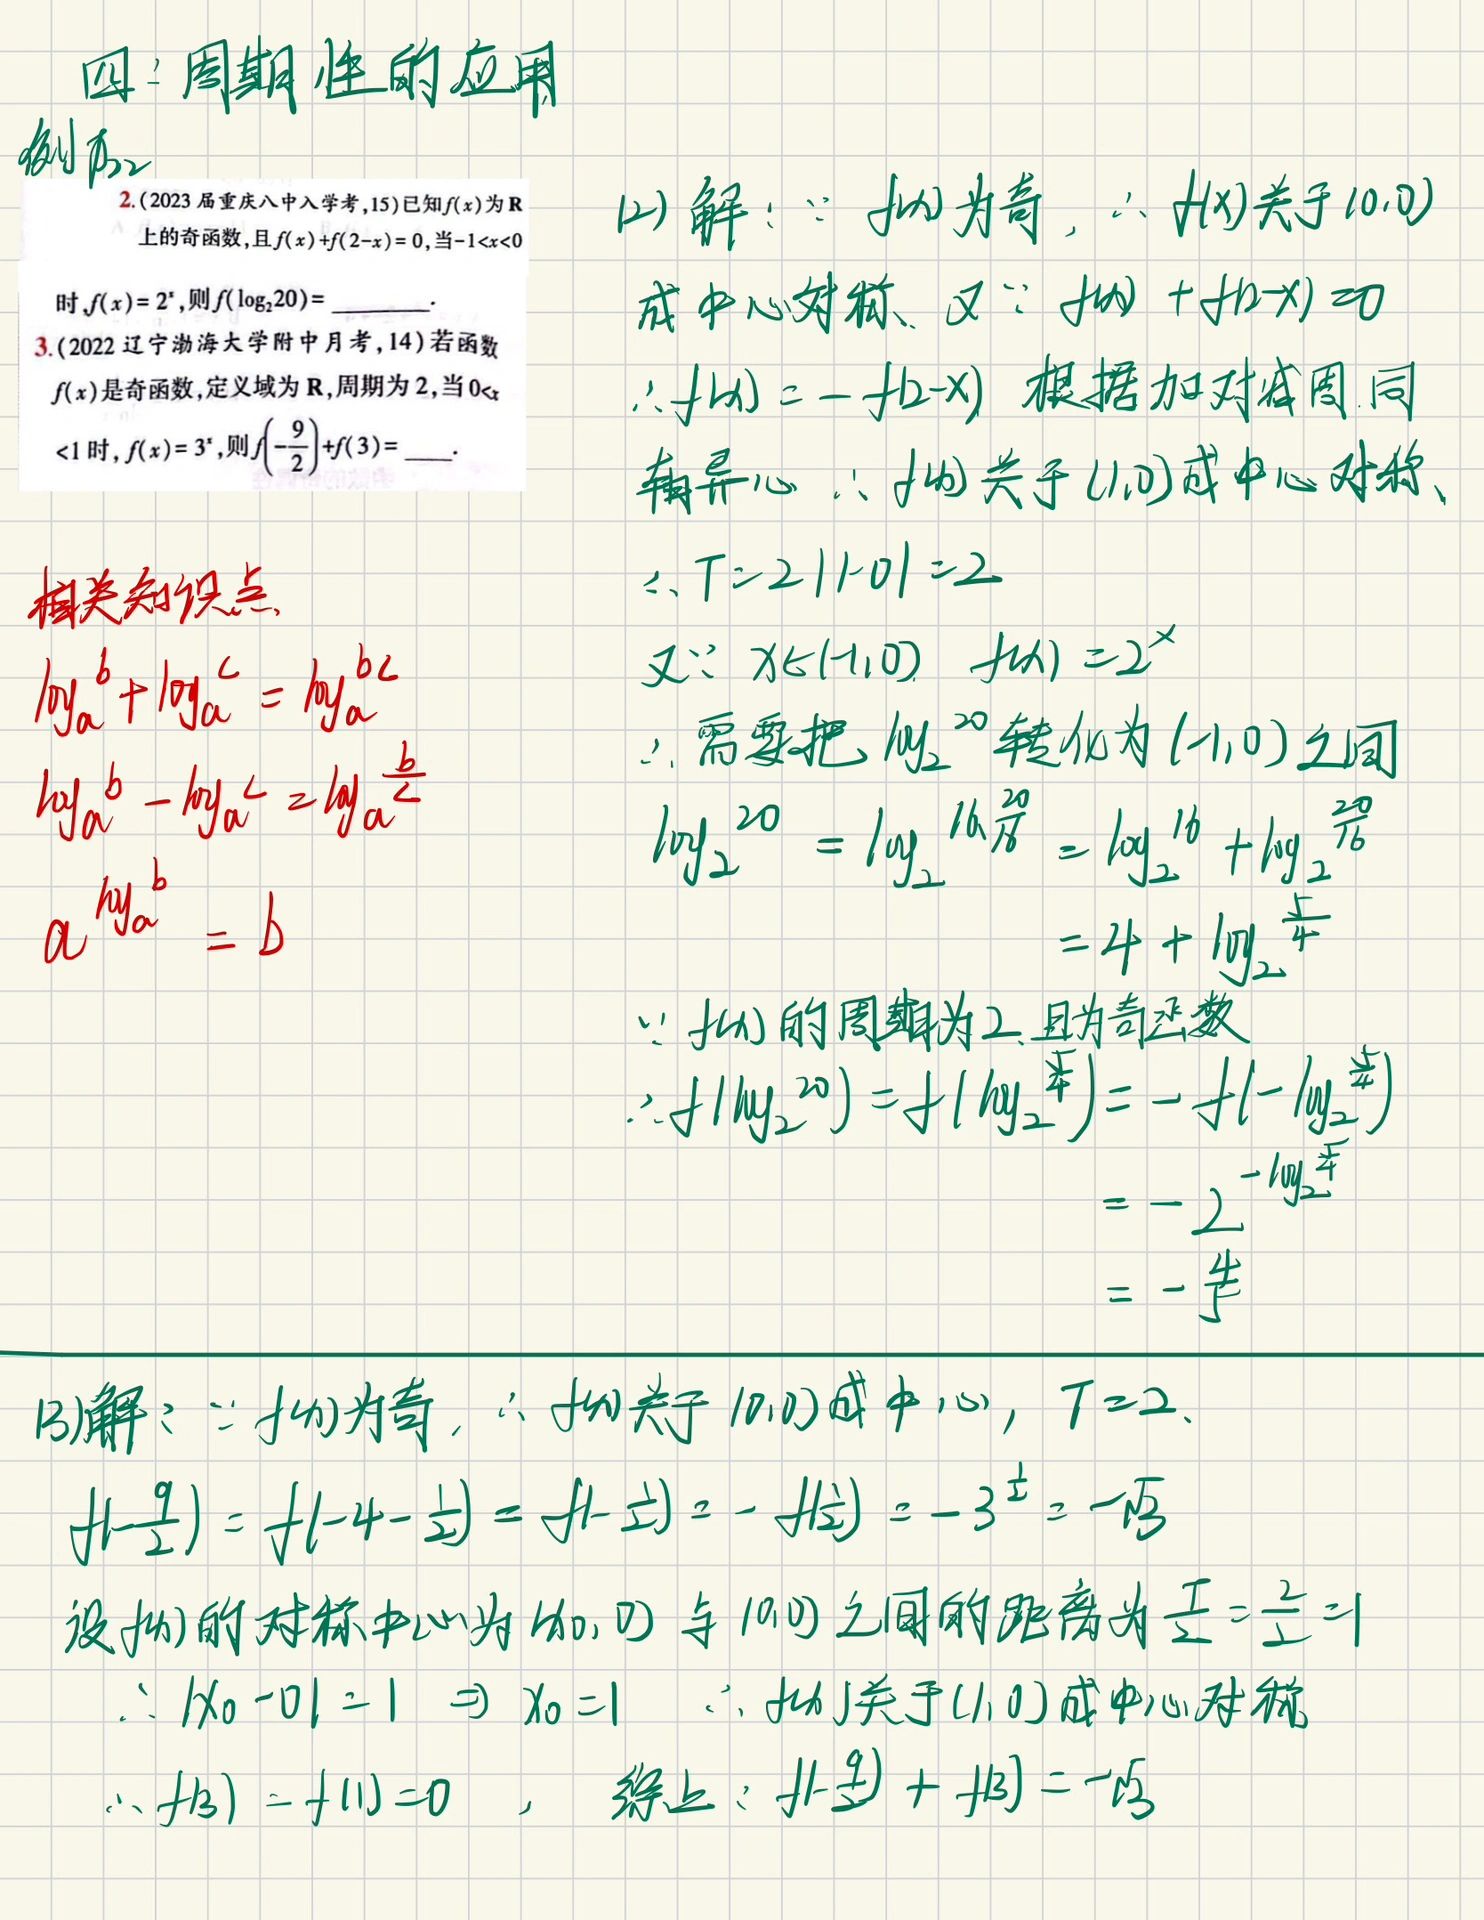 四：周期性的应用
例P22
2.(2023届重庆八中入学考,15)已知f(x)为R
上的奇函数,且f(x)+f(2-x)=0,当-1<x<0
时,f(x)=2ˣ,则f(log₂20)=______.
3.(2022辽宁渤海大学附中月考,14)若函数
f(x)是奇函数,定义域为R,周期为2,当0<x
<1时,f(x)=3ˣ,则f(-9/2)+f(3)=____.
相关知识点
logₐb+logₐc=logₐbc
logₐb-logₐc=logₐ(b/c)
a^(logₐb)=b
(2)解：∵f(x)为奇,∴f(x)关于(0,0)
成中心对称、又∵f(x)+f(2-x)=0
∴f(x)=-f(2-x)根据加对减周.同
轴异心∴f(x)关于(1,0)成中心对称、
∴T=2|1-0|=2
又∵x∈(-1,0) f(x)=2ˣ
∴需要把log₂20转化为(-1,0)之间
log₂20=log₂(16×20/16)=log₂16+log₂(20/16)
=4+log₂(5/4)
∵f(x)的周期为2、且为奇函数
∴f(log₂20)=f(log₂(5/4))=-f(-log₂(5/4))
=-2^(-log₂(5/4))
=-4/5
(3)解：∵f(x)为奇,∴f(x)关于(0,0)成中心,T=2、
f(-9/2)=f(-4-1/2)=f(-1/2)=-f(1/2)=-3^(1/2)=-√3
设f(x)的对称中心为(x₀,0)与(0,0)之间的距离为T/2=2/2=1
∴|x₀-0|=1⇒x₀=1 ∴f(x)关于(1,0)成中心对称
∴f(3)=f(1)=0,综上：f(-9/2)+f(3)=-√3